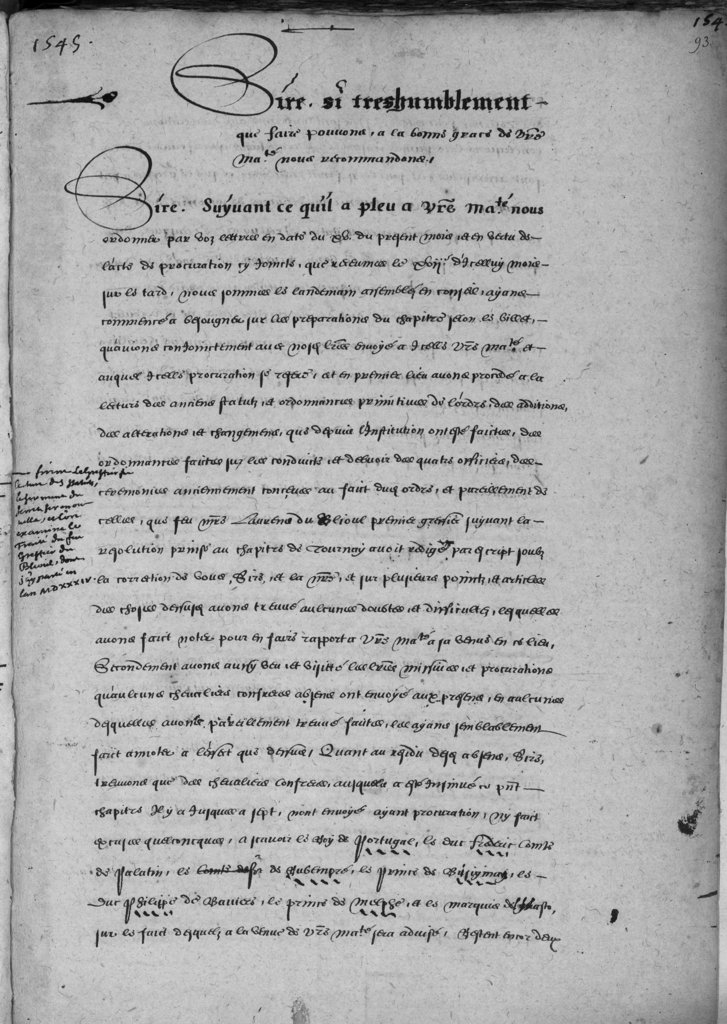 1545.
154
93
Sire. si treshumblement
que faire pouvons, a la bonne grace de vre
Ma.te nous recommandons,
Sire. Suyvant ce quil a pleu a vre ma.te nous
ordonner par voz lettres en date du du present mois, et en vertu de
lacte de procuration cy joincte, que receumes le d'icelluy mois
sur le tard, nous sommes le landemain assemblés en conseil, ayans
commencé a besoignier sur les preparations du chapitre selon le billet,
quavions conjoinctement avec noz lres envoyé a icelle vre ma.te et
auquel icelle procuration se refere, et en premier lieu avons procedé a la
lecture des anciens statutz, et ordonnances primitives de lordre, des additions,
des alterations et changemens, que depuis l'Institution ont esté faictes, des
ordonnances faictes sur les conduite et debvoir des quatre officiers, des
ceremonies anciennement conceues au faict dudit ordre, et pareillement de
celles, que feu mre Laurens du Blioul premier greffier suyvant la
resolution prinse au chapitre de Tournay avoit redigé par escript soubz
la correction de vous, Sire, et la nre, et sur plusieurs pointz et articles
des choses dessus avons treuvé aulcunes doubtes et difficultez, lesquelles
avons faict noter pour en faire rapport a vre ma.te a sa venue en ce lieu,
Secondement avons aussy veu et visitté les lres missives et procurations
quaulcuns chevaliers confreres absens ont envoyé aux presens, en aulcunes
desquelles avons pareillement treuvé faultes, les ayans semblablement
faict annoter a l'effect que dessus, Quant au residu desdits absens, Sire,
treuvons que des chevaliers confreres, ausquelz a esté insinué ce pnt
chapitre Il y a jusques a sept, nont envoyé ayant procuration, ny faict
excuse quelconques, a scavoir le Roy de Portugal, le duc Frederic Conte
de Palatin, le conte de Sr de Bublempre, le prince de Bisignan, le
Duc Philippe de Baviere, le prince de Melphe, et le marquis del Gasto,
sur le faict desquelz a la venue de vre ma.te sera advisé, Restent encor deux
lecture des statutz,
examine le
Traité du feu
greffier du
Blioul, dont
lan MDXXXIV